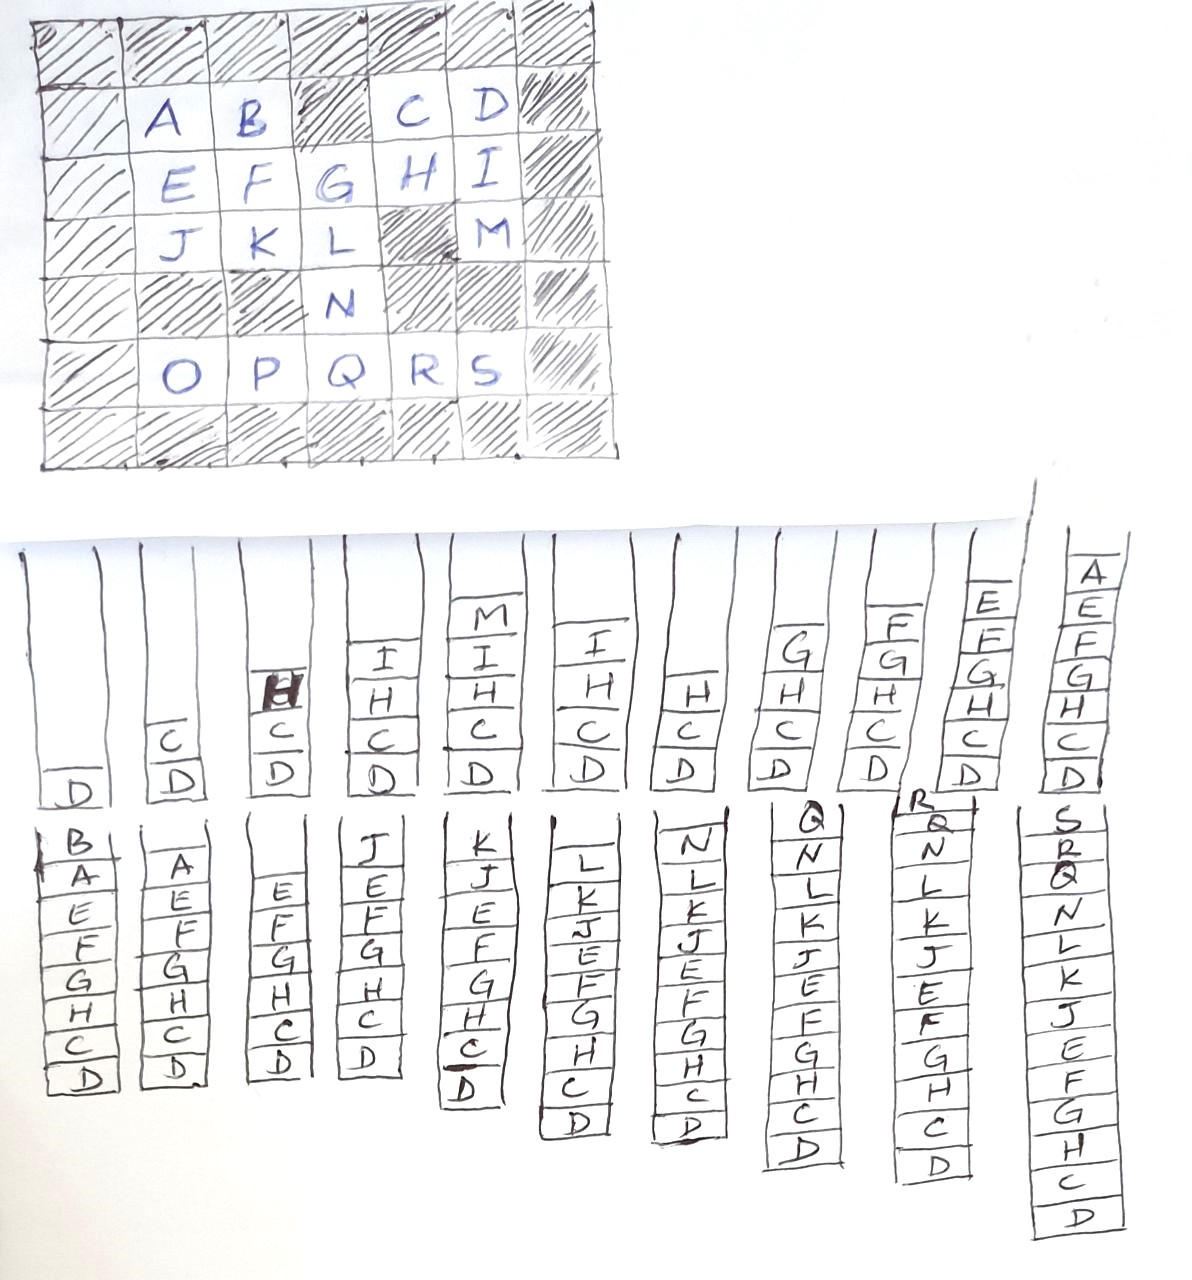 A B C D
E F G H I
J K L M
N
O P Q R S
D
C
D
H
C
D
I
H
C
D
M
I
H
C
D
I
H
C
D
H
C
D
G
H
C
D
F
G
H
C
D
E
F
G
H
C
D
A
E
F
G
H
C
D
B
A
E
F
G
H
C
D
A
E
F
G
H
C
D
E
F
G
H
C
D
J
E
F
G
H
C
D
K
J
E
F
G
H
C
D
L
K
J
E
F
G
H
C
D
N
L
K
J
E
F
G
H
C
D
Q
N
L
K
J
E
F
G
H
C
D
R
Q
N
L
K
J
E
F
G
H
C
D
S
R
Q
N
L
K
J
E
F
G
H
C
D